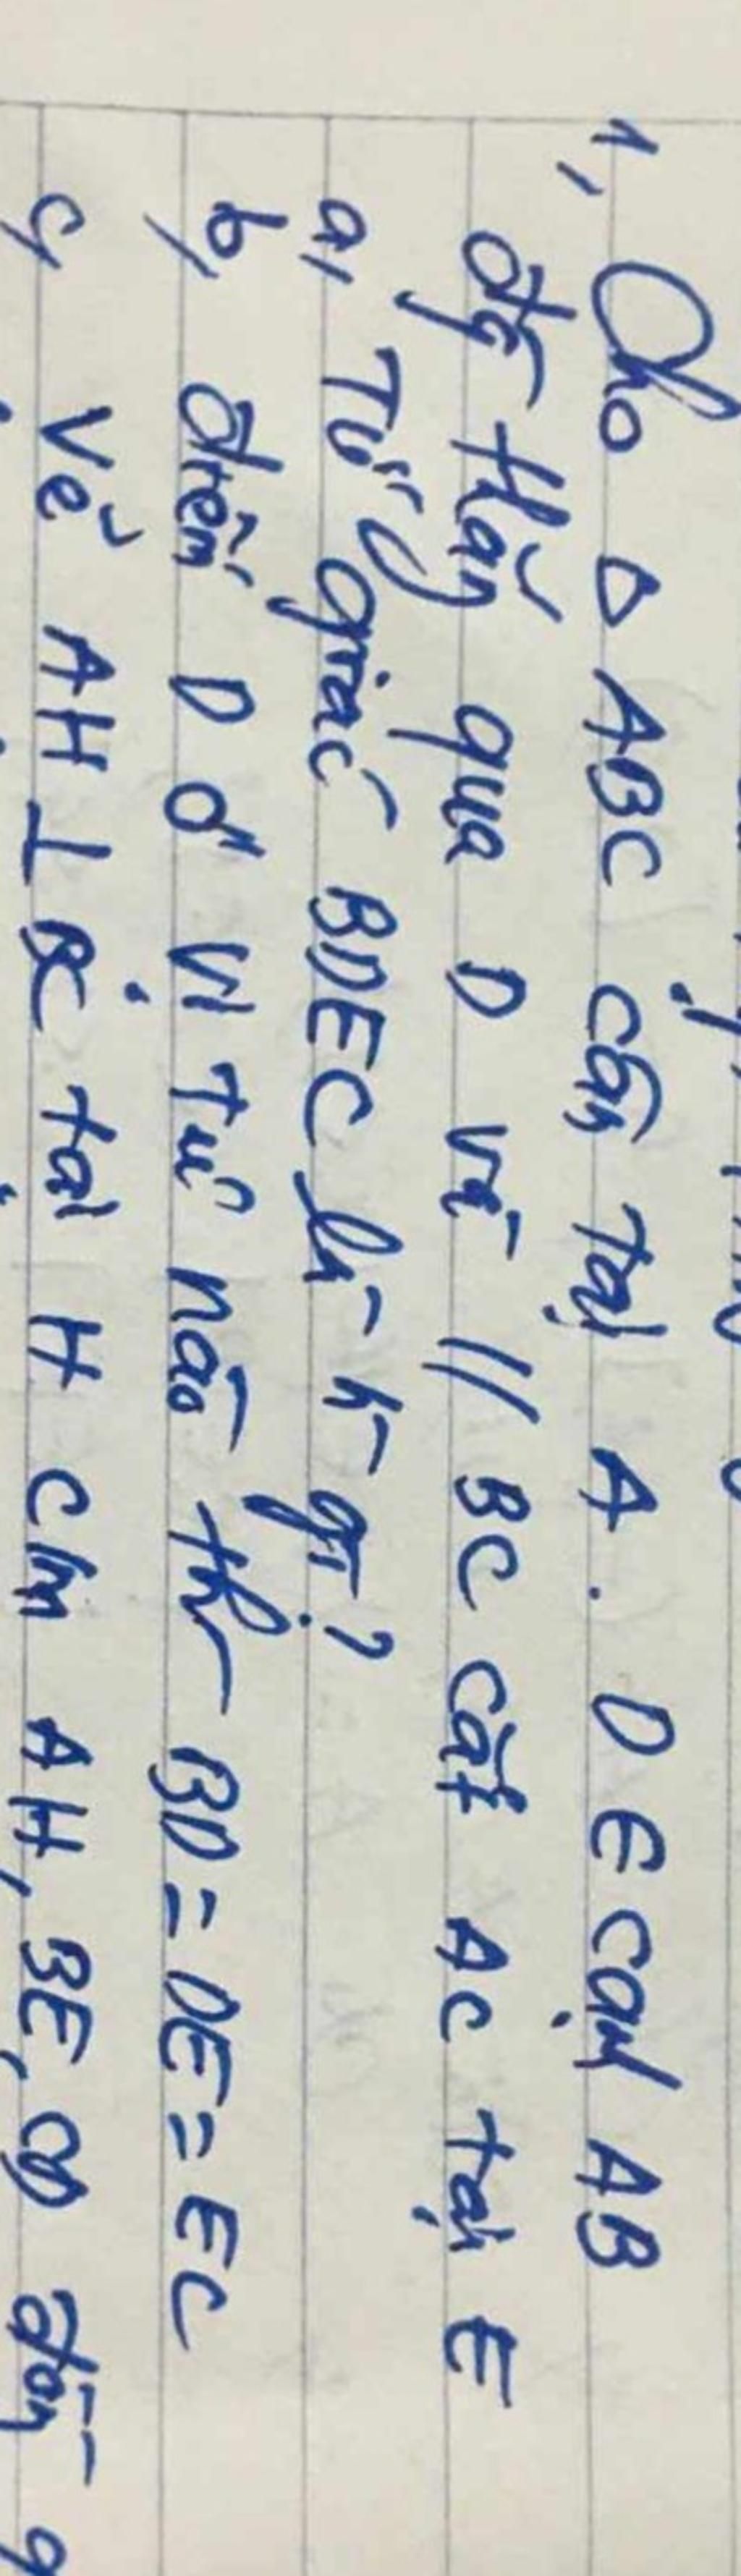 1, Cho Δ ABC cân tại A. D ∈ cạnh AB
qua D vẽ // BC cắt AC tại E
a, Tứ giác BDEC là h gì?
b, điểm D ở vị trí nào thì BD = DE = EC
c, Vẽ AH ⊥ BC tại H cm AH, BE, CD đồng q